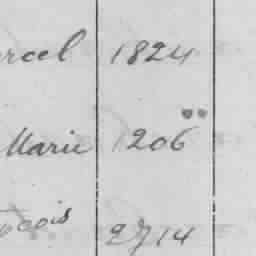 rcel 1824
Marie 1206
çois 2714